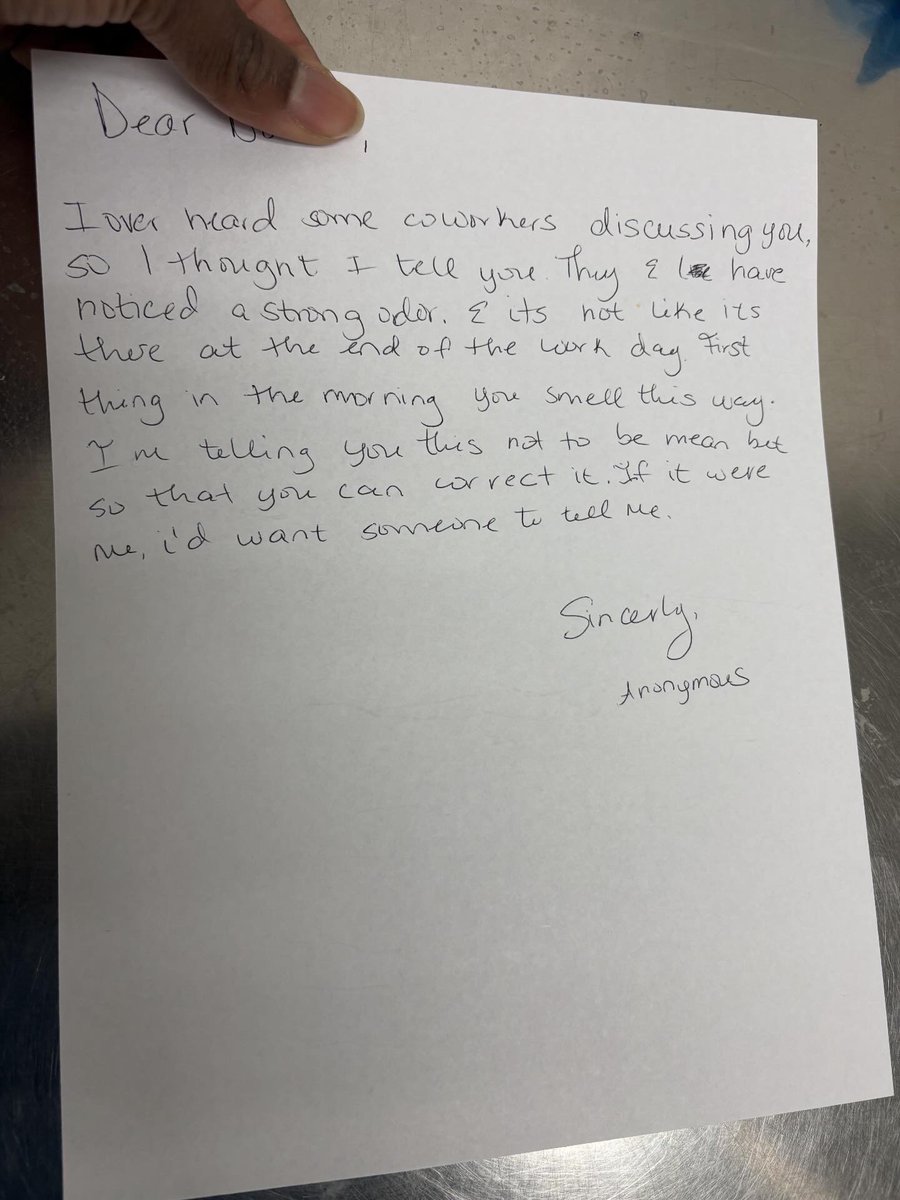 Dear ,
I over heard some coworkers discussing you,
so I thought I tell you. They & have
noticed a strong odor. & its not like its
there at the end of the work day. First
thing in the morning you smell this way.
I'm telling you this not to be mean but
so that you can correct it. If it were
me, i'd want someone to tell me.
Sincerly,
Anonymous